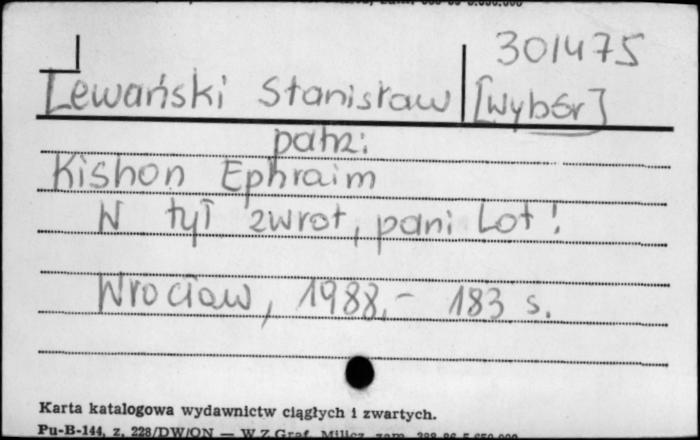 301475
Lewański Stanisław [Wybór]
patrz:
Kishon Ephraim
W tył zwrot, pani Lot!
Wrocław, 1988.- 183 s.
Karta katalogowa wydawnictw ciągłych i zwartych.
Pu-B-144, z. 228/DW/ON — W.Z.Graf. Milicz, zam.